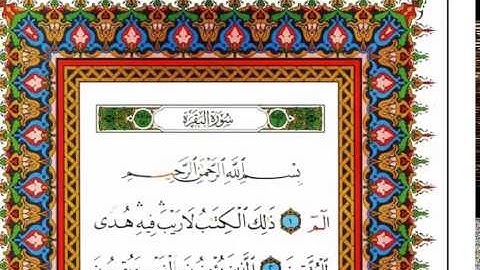 سُورَةُ البَقَرَةِ
بِسْمِ ٱللَّهِ ٱلرَّحْمَٰنِ ٱلرَّحِيمِ
الٓمٓ ١ ذَٰلِكَ ٱلْكِتَٰبُ لَا رَيْبَ ۛ فِيهِ ۛ هُدًى